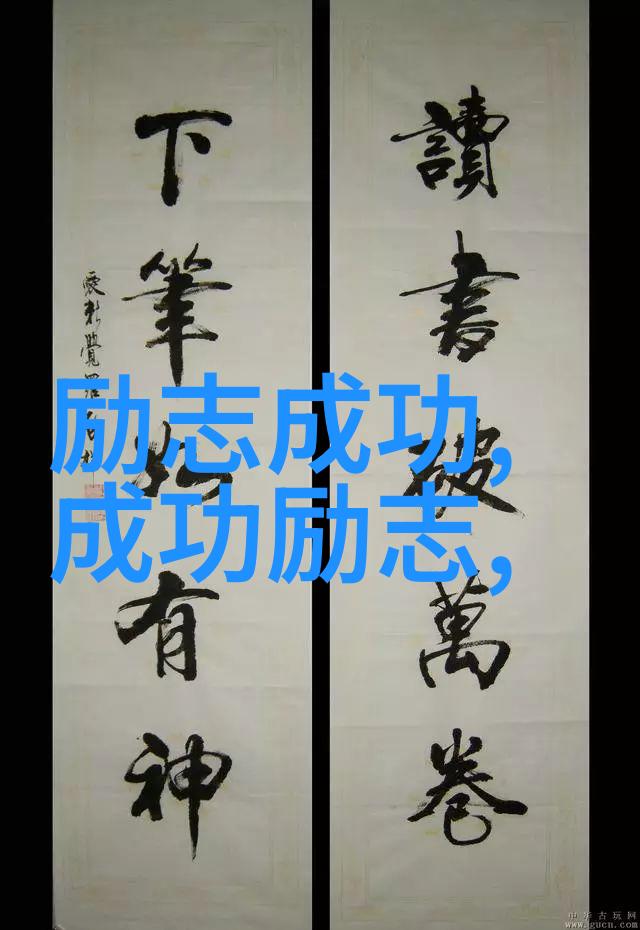 讀書破萬卷
下筆如有神
愛新覺羅
励志成功,
成功励志,
中华古玩网
www.gucn.com